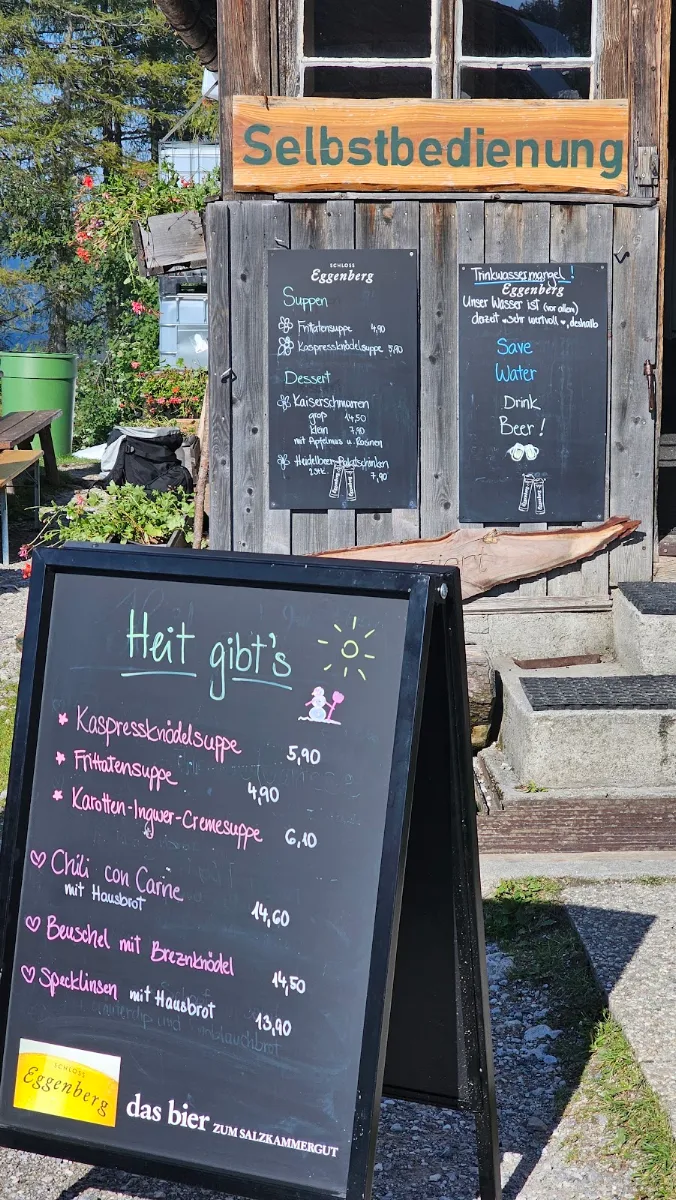 Selbstbedienung
SCHLOSS
Eggenberg
Suppen
Frittatensuppe 4,90
Kaspressknödelsuppe 5,90
Dessert
Kaiserschmarren
groß 14,50
klein 7,90
mit Apfelmus u. Rosinen
Heidelbeer-Palatschinken
2 Stk. 7,90
Trinkwassermangel!
Eggenberg
Unser Wasser ist (vor allem)
derzeit sehr wertvoll, deshalb
Save
Water
Drink
Beer!
Heit gibt's
Kaspressknödelsuppe 5,90
Frittatensuppe 4,90
Karotten-Ingwer-Cremesuppe 6,10
Chili con Carne
mit Hausbrot 14,60
Beuschel mit Breznknödel 14,50
Specklinsen mit Hausbrot 13,90
SCHLOSS
Eggenberg
das bier ZUM SALZKAMMERGUT